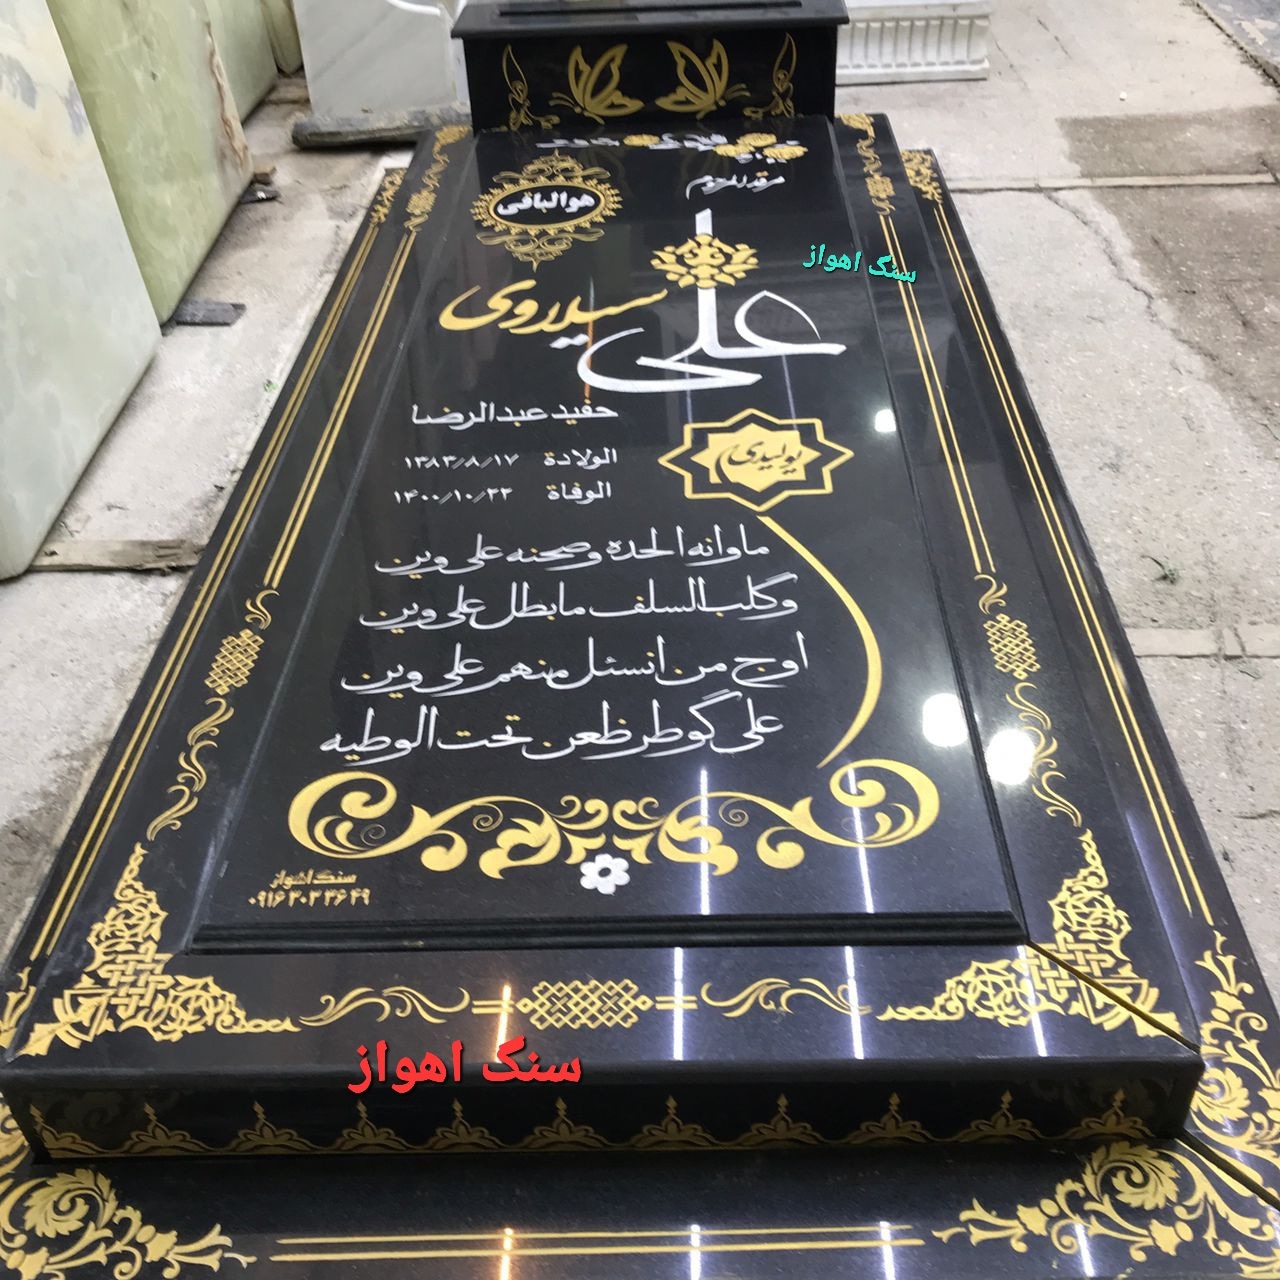 هوالباقی
مرقد المرحوم
علی سیلاوی
سنگ اهواز
حفید عبدالرضا
یولیدی
الولادة ۱۳۸۳/۸/۱۷
الوفاة ۱۴۰۰/۱۰/۲۲
ماوانه الحده وصحنه علی وین
وگلب السلف مابطل علی وین
اوج من انسئل منهم علی وین
علی گوطر ظعن تحت الوطیه
سنگ اهواز
۰۹۱۶ ۳۰۳ ۳۶ ۴۹
سنگ اهواز